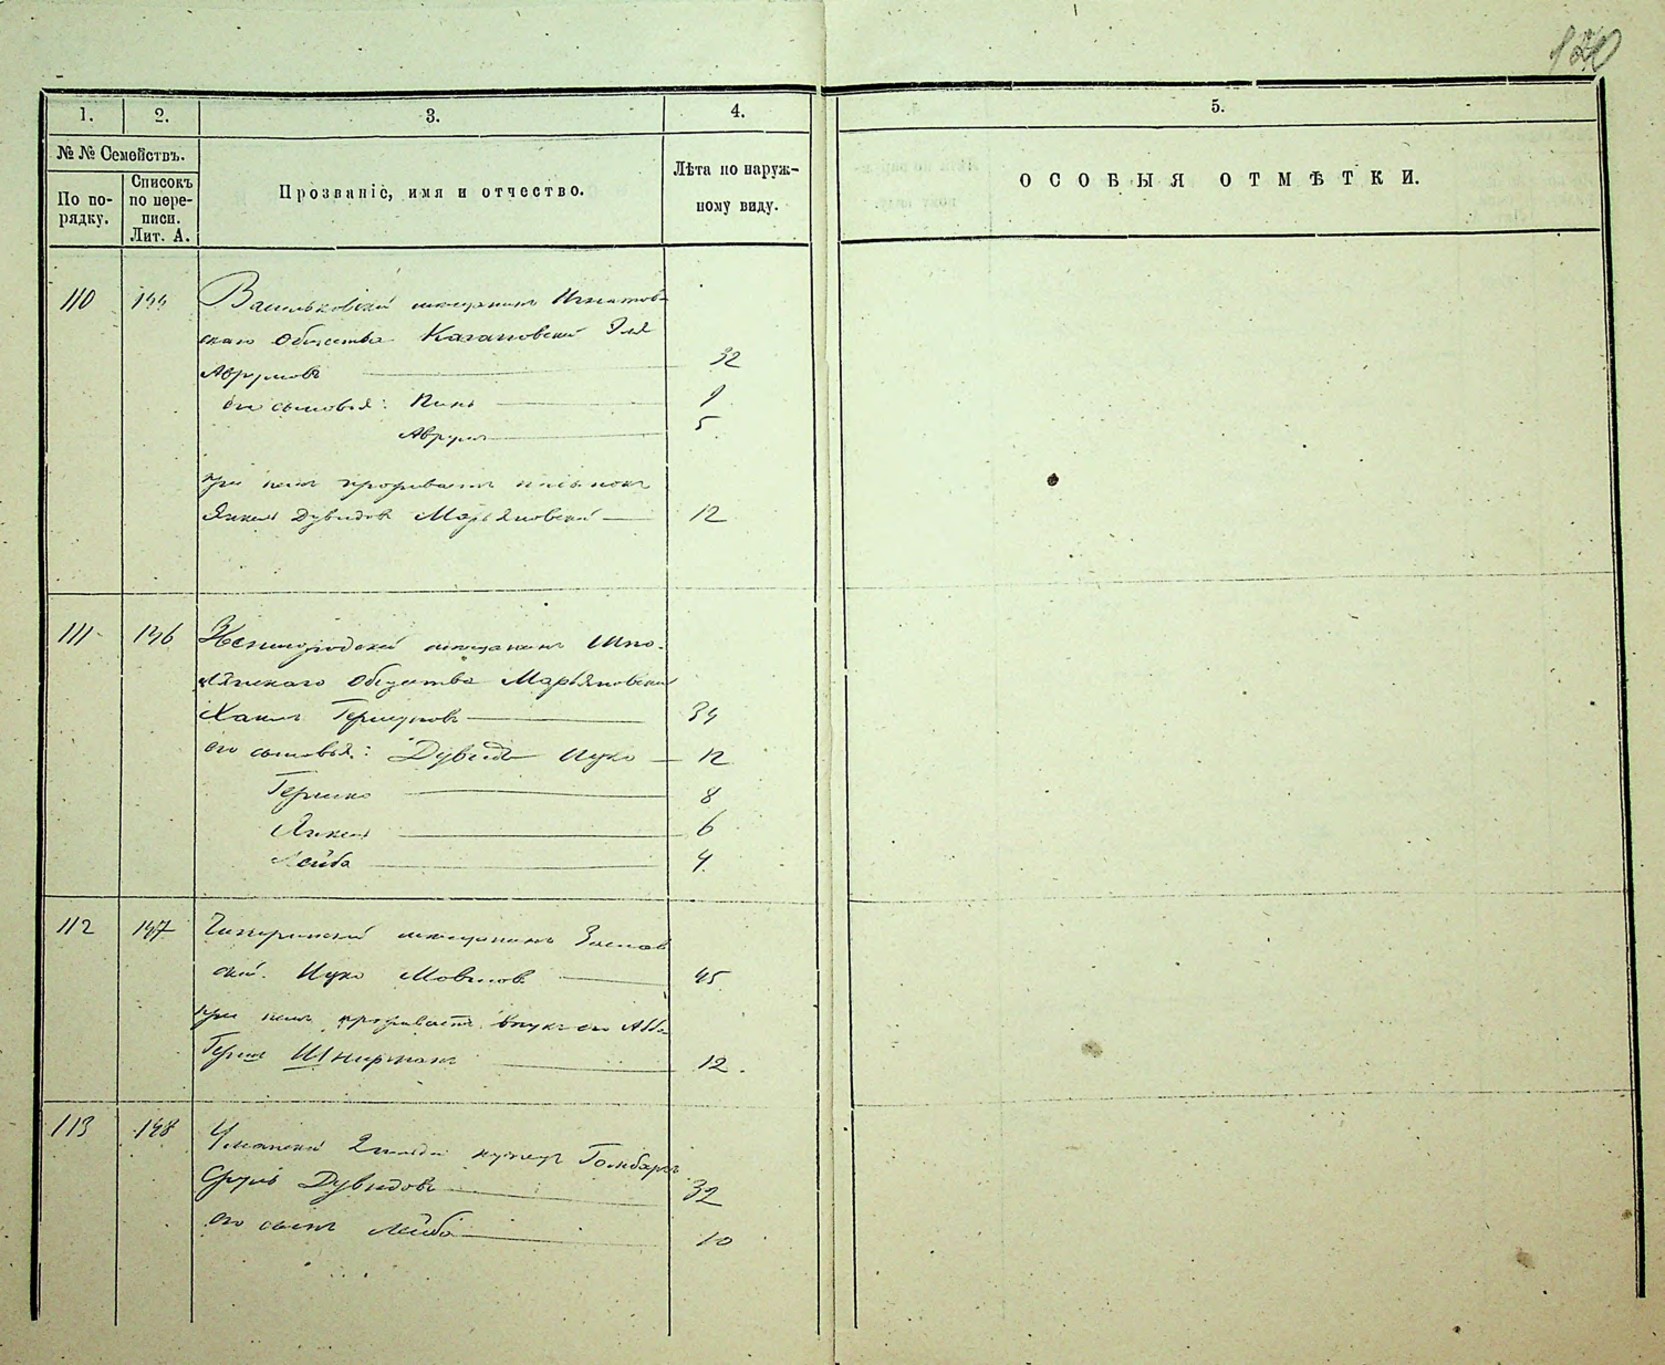 1.
2.
3.
4.
5.
№ № Семействъ.
По по-
рядку.
Списокъ
по пере-
писи.
Лит. А.
Прозваніе, имя и отчество.
Лѣта по наруж-
ному виду.
ОСОБЫЯ ОТМѢТКИ.
110 144 Васильковскій мѣщанинъ Игнатов-
скаго Общества Кагановскій Эля
Аврумовъ 32
его сыновья: Пинь
Аврумъ 5
при немъ проживаетъ
Янкель Дувидовъ Марьяновскій 12
111 146 Звенигородскій мѣщанинъ Шпо-
лянскаго Общества Марьяновскій
Хаимъ Гершковъ 34
его сыновья: Дувидъ Ицко 12
Гершко 8
Янкель 6
Лейба 4
112 147 Чигиринскій мѣщанинъ Заслав
скій Ицко Мовшовъ 45
при немъ проживаетъ внукъ его Абба
Герш Шнирман 12
113 148 Уманскій 2 гильдіи купецъ Гомберг
Сруль Дувидовъ 32
его сынъ Лейба 10